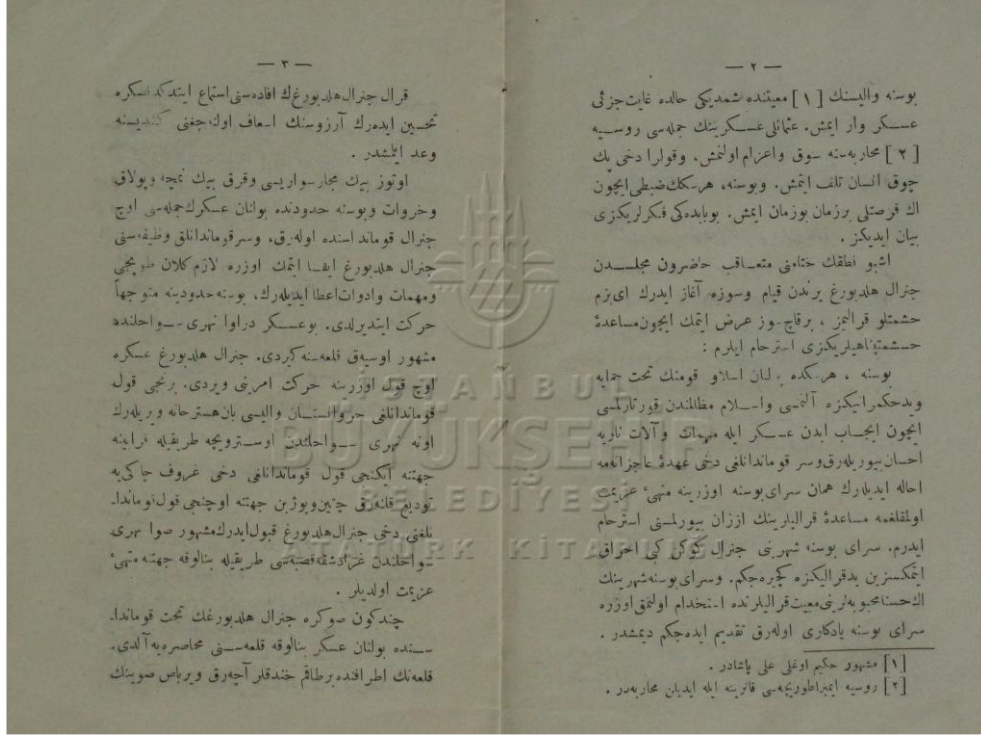 — ٢ —
بوسنه والیسنك [ ١ ] معیتنده شمدیكی حالده غایت جزئی
عسـكر وار ایمش. عثمانلی عسـكرینك جمله‌سی روسـیه
[ ٢ ] محاربه‌سنه سوق واعزام اولنمش، وقولرا دخی پك
چوق انسان تلف ایتمش. وبوسنه، هرسكك ضبطی ایچون
اك فرصتلی برزمان بوزمان ایمش. بوبابده‌كی فكرلریكزی
بیان ایدیكز .
اشبو نطقك ختامنی متعـاقب حاضرون مجلسـدن
جنرال هلدبورغ یرندن قیام وسوزه آغاز ایدرك ای‌بزم
حشمتلو قرالمز ، برقاچ سوز عرض ایتمك ایچون مساعدۀ
حشمتپناهیلریكزی استرحام ایلرم :
بوسنه ، هرسكده بولنان اسلاو قومنك تحت حمایه
ویدحكمرانیكزه آلنمسی واسـلام مظالمندن قورتارلمسی
ایچون ایجـاب ایدن عسـكر ایله مهمات وآلات ناریه
احسان بیوریله‌رق وسر قوماندانلغی دخی عهدۀ عاجزانه‌مه
احاله ایدیلرك همان سرای بوسنه اوزرینه منهی‌ٔ عزیمت
اولمقلغمه مساعدۀ قرالیلرینك ارزان بیورلمسنی استرحام
ایدرم. سرای بوسنه شهرینی جنرال كوكن كبی احراق
ایتمكسزین یدقرالیكزه كچیره‌جكم. وسرای بوسنه شهرینك
اك‌حسنا محبوبه‌لرینی معیت قرالیلرنده استخدام اولنمق اوزره
سرای بوسنه یادكاری اوله‌رق تقدیم ایده‌جكم دیمشدر .
[١] مشهور حكیم اوغلی علی پاشادر .
[٢] روسیه ایمپراطوریچه‌سی قاترینه ایله ایدیلن محاربه‌در .
— ٣ —
قرال جنرال هلدبورغك افاده‌سنی استماع ایتدكدنصكره
تحسین ایدەرك آرزوسنك اسعاف اولنه‌جغنی كندیسنه
وعد ایلمشدر .
اوتوز بیك مجار سواریسی وقرق بیك نمچه وپولاق
وخروات وبوسنه حدودنده بولنان عسكرك جمله‌سی اوچ
جنرال قوماندا سنده اوله‌رق، وسرقوماندانلق وظیفه‌سنی
جنرال هلدبورغ ایفـا ایتمك اوزره لازم كلان طوپجی
ومهمات وادوات اعطا ایدیله‌رك، بوسنه حدودینه متوجهاً
حركت ایتدیرلدی. بوعسـكر دراوا نهری سـواحلنده
مشهور اوسیه‌ق قلعه‌سنه كیردی. جنرال هلدبورغ عسكره
اوچ قول اوزرینه حركت امرینی ویردی. برنجی قول
قوماندانلغی خرواتستـان والیسی بان هسترحانه ویریله‌رك
اونه نهری سـواحلندن اوسـترویچه طریقیله قراینه
جهتنه ایكنجی قول قوماندانلغی دخی غروف جاكی‌یه
تودیع قلنه‌رق چتین وبوژین جهتنه اوچنجی قول قوماندا-
نلغنی دخی جنرال هلدبورغ قبول ایدرك مشهور صوا نهری
سواحلندن غرادشقه قصبه‌سی طریقیله بنالوقه جهتنه متهی‌ٔ
عزیمت اولدیلر .
چندكون صوكره جنرال هلدبورغك تحت قوماندا-
سـنده بولنان عسكر بنالوقه قلعه‌سـنی محاصره‌یه آلدی.
قلعه‌نك اطرافنده برطاقم خندقلر آچه‌رق وبرباس صوینك